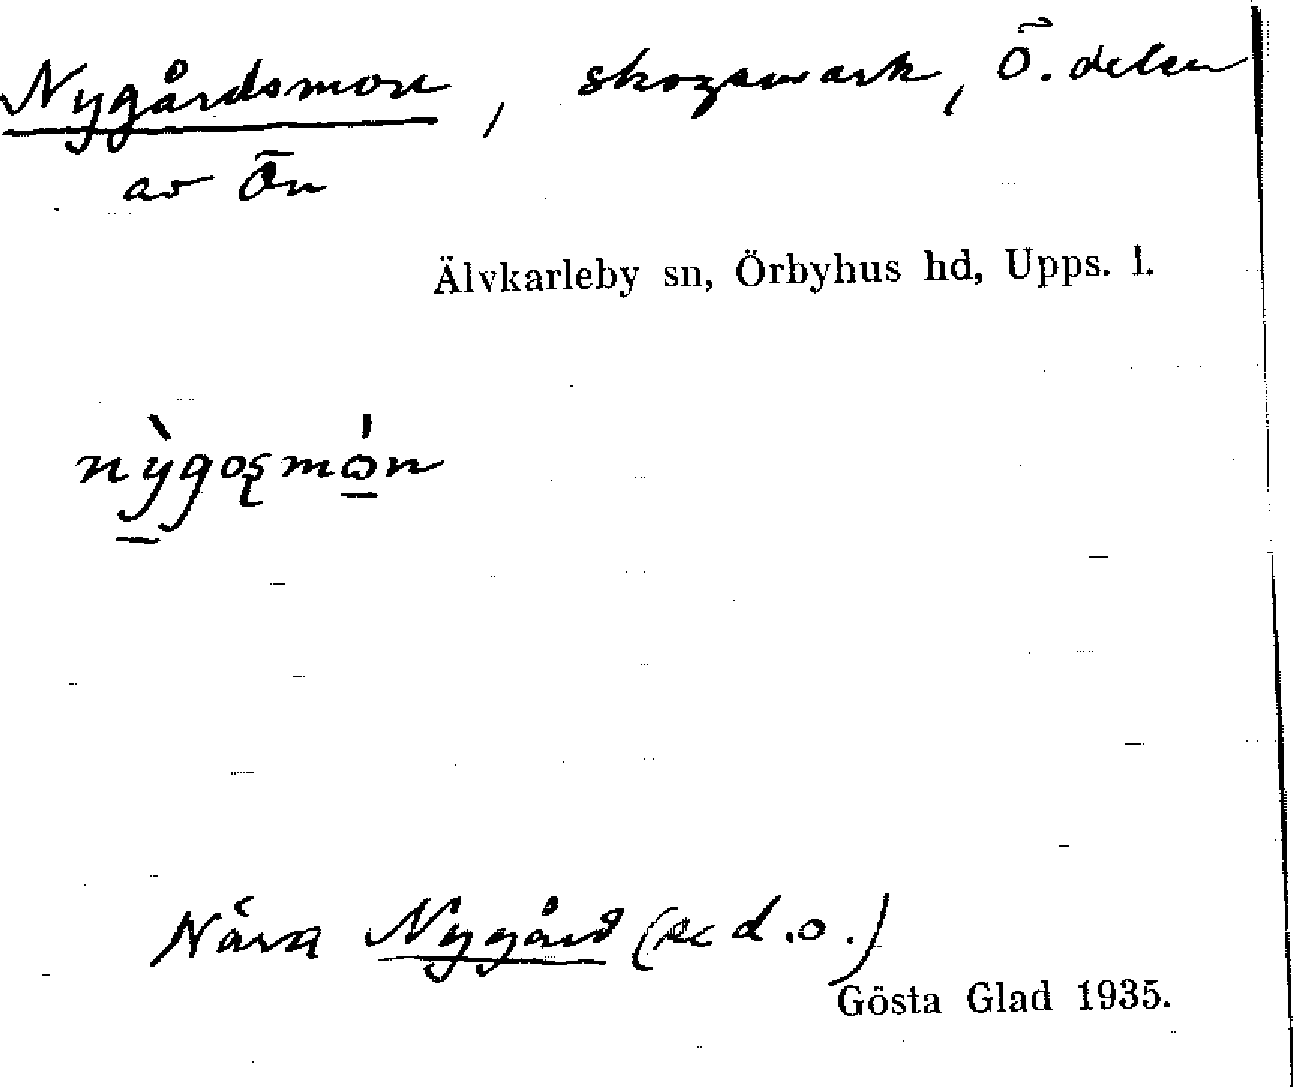 Nygårdsmon, skogsmark, Ö. delen
av Ön
Älvkarleby sn, Örbyhus hd, Upps. l.
nỳgoʂmɔ́n
Nära Nygård (se d.o.)
Gösta Glad 1935.